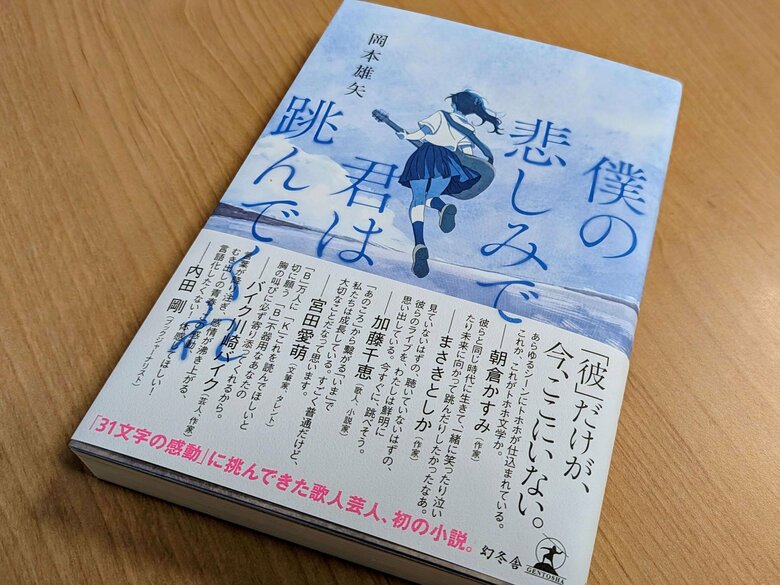 岡本雄矢
僕の
悲しみで
君は
跳んでくれ
「彼」だけが、
今、ここにいない。
あらゆるシーンにトホホが仕込まれている。
これか、これがトホホ文学か。
——朝倉かすみ(作家)
彼らと同じ時代に生きて、一緒に笑ったり泣い
たり未来に向かって跳んだりしたかったなあ。
——まさきとしか(作家)
見ていないはずの、聴いていないはずの、
彼らのライブを、わたしは鮮明に
思い出している。今すぐに、跳べそう。
——加藤千恵(歌人、小説家)
「あのころ」から繋がる「いま」で
私たちは成長している。すごく普通だけど、
大切なことだなって思います。
——宮田愛萌(文筆家、タレント)
「B」万人に「K」これを読んでほしいと
切に願う「B」不器用なあなたの
胸の叫びに必ず寄り添ってくれるから。
——バイク川崎バイク(芸人、作家)
言葉が降り注ぎ、感情が沸き上がる、
むき出しの青春 してほしい!
言語化したくない!
——内田 剛(ブックジャーナリスト)
「31文字の感動」に挑んできた歌人芸人、初の小説。
幻冬舎
GENTOSHA